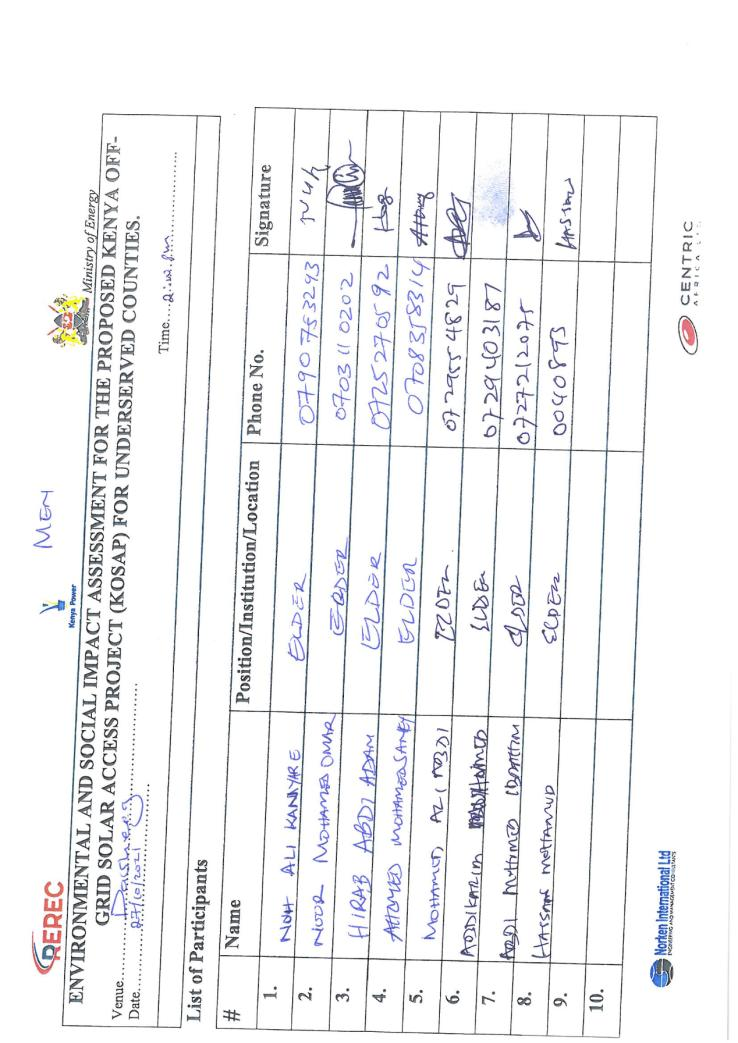 REREC
Kenya Power
MEN
Ministry of Energy
ENVIRONMENTAL AND SOCIAL IMPACT ASSESSMENT FOR THE PROPOSED KENYA OFF-
GRID SOLAR ACCESS PROJECT (KOSAP) FOR UNDERSERVED COUNTIES.
Venue
Date 27/10/2021
Time
List of Participants
# Name Position/Institution/Location Phone No. Signature
1. NOH ALI KANYARE ELDER 0790753293 NUH
2. NOOR MOHAMED OMAR ELDER 0703110202
3. HIRAB ABDI ADAM ELDER 0725270592
4. AHOMED MOHAMED SANEY ELDER 0708358314
5. MOHAMUD ALI ABDI ELDER 0729554829
6. ABDIKARIM ELDER 0729403187
7. ABDI IBRAHIM ELDER 0727212075
8. HASSAN MOHAMUD ELDER 0040893 HASSAN
9.
10.
Norken International Ltd
ENGINEERING AND MANAGEMENT CONSULTANTS
CENTRIC
AFRICA LTD